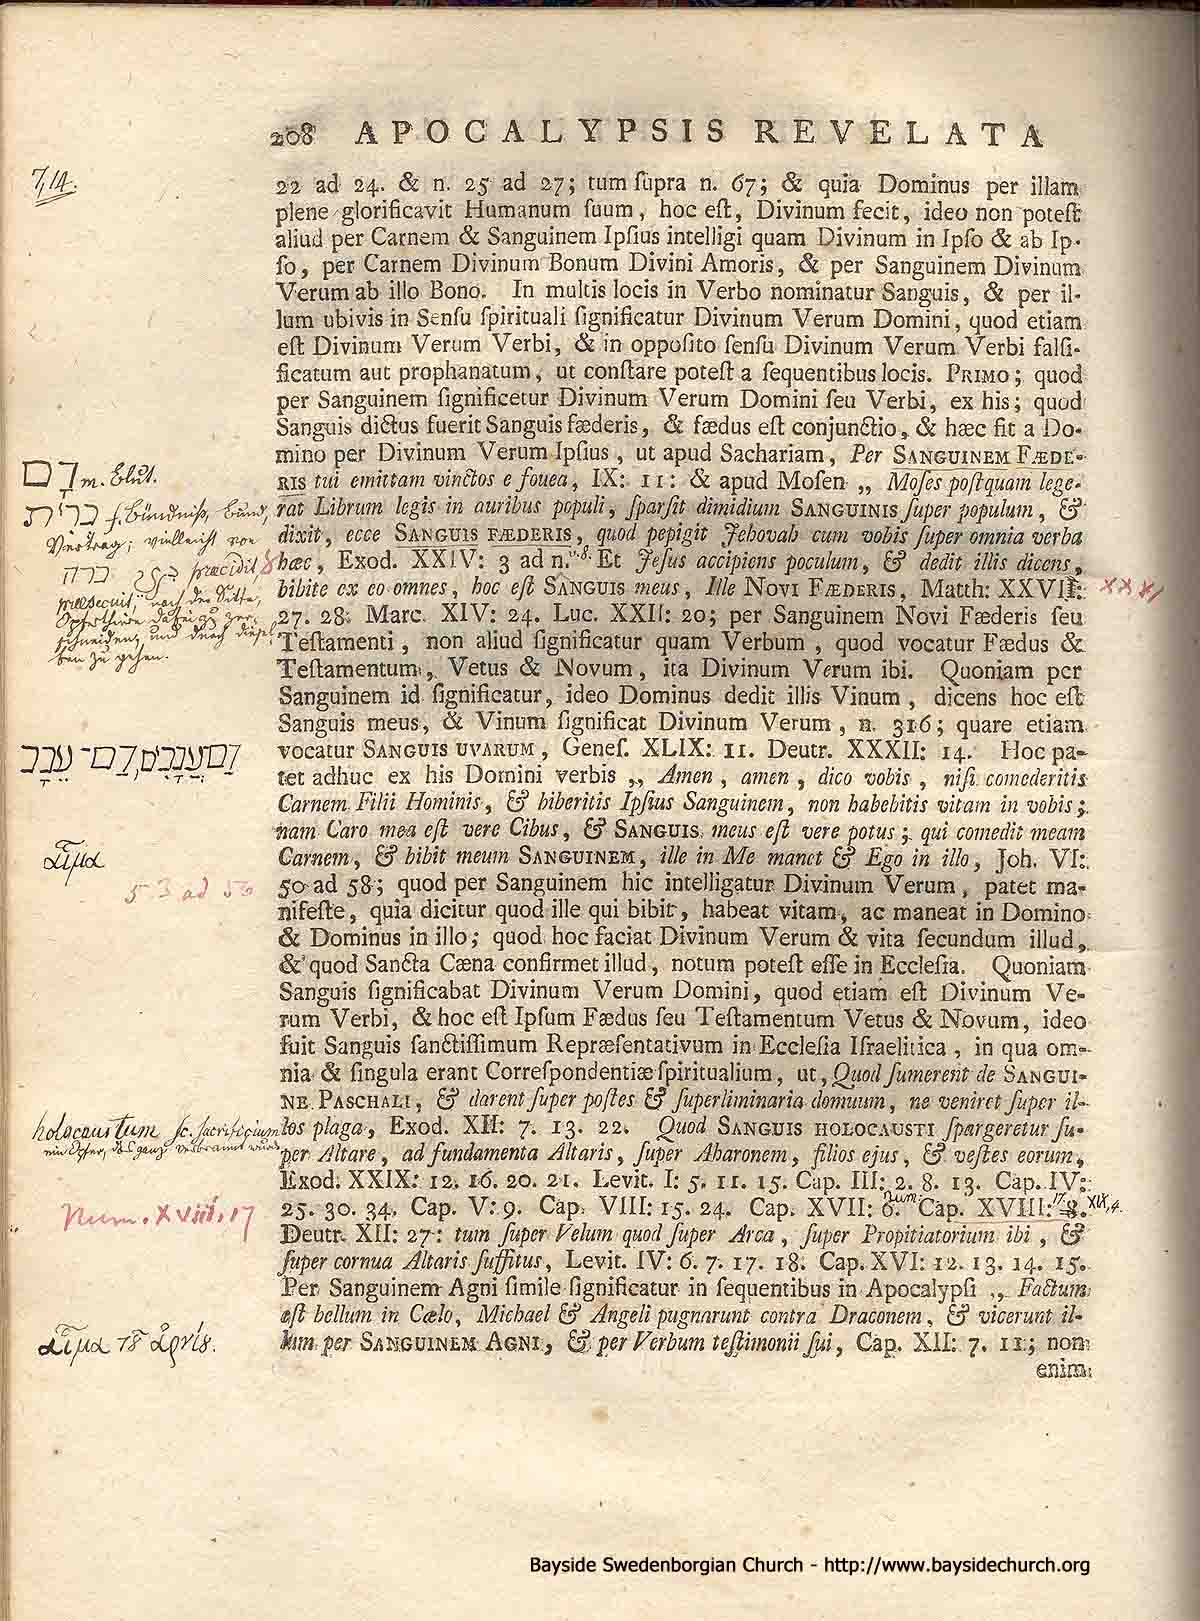 208 APOCALYPSIS REVELATA
7,14.
22 ad 24. & n. 25 ad 27; tum ſupra n. 67; & quia Dominus per illam
plene glorificavit Humanum ſuum, hoc eſt, Divinum fecit, ideo non poteſt
aliud per Carnem & Sanguinem Ipſius intelligi quam Divinum in Ipſo & ab Ip-
ſo, per Carnem Divinum Bonum Divini Amoris, & per Sanguinem Divinum
Verum ab illo Bono. In multis locis in Verbo nominatur Sanguis, & per il-
lum ubivis in Senſu ſpirituali ſignificatur Divinum Verum Domini, quod etiam
eſt Divinum Verum Verbi, & in oppoſito ſenſu Divinum Verum Verbi falſi-
ficatum aut prophanatum, ut conſtare poteſt a ſequentibus locis. PRIMO; quod
per Sanguinem ſignificetur Divinum Verum Domini ſeu Verbi, ex his; quod
Sanguis dictus fuerit Sanguis fæderis, & fædus eſt conjunctio, & hæc fit a Do-
mino per Divinum Verum Ipſius, ut apud Sachariam, Per SANGUINEM FÆDE-
RIS tui emittam vinctos e fovea, IX: 11: & apud Moſen „ Moſes poſtquam lege-
rat Librum legis in auribus populi, ſparſit dimidium SANGUINIS ſuper populum, &
dixit, ecce SANGUIS FÆDERIS, quod pepigit Jehovah cum vobis ſuper omnia verba
hæc, Exod. XXIV: 3 ad n. v. 8. Et Jeſus accipiens poculum, & dedit illis dicens,
bibite ex eo omnes, hoc eſt SANGUIS meus, Ille NOVI FÆDERIS, Matth: XXVII:
27. 28. Marc. XIV: 24. Luc. XXII: 20; per Sanguinem Novi Fæderis ſeu
Teſtamenti, non aliud ſignificatur quam Verbum, quod vocatur Fædus &
Teſtamentum, Vetus & Novum, ita Divinum Verum ibi. Quoniam per
Sanguinem id ſignificatur, ideo Dominus dedit illis Vinum, dicens hoc eſt
Sanguis meus, & Vinum ſignificat Divinum Verum, n. 316; quare etiam
vocatur SANGUIS UVARUM, Geneſ. XLIX: 11. Deutr. XXXII: 14. Hoc pa-
tet adhuc ex his Domini verbis „ Amen, amen, dico vobis, niſi comederitis
Carnem Filii Hominis, & biberitis Ipſius Sanguinem, non habebitis vitam in vobis;
nam Caro mea eſt vere Cibus, & SANGUIS meus eſt vere potus; qui comedit meam
Carnem, & bibit meum SANGUINEM, ille in Me manet & Ego in illo, Joh. VI:
50 ad 58; quod per Sanguinem hic intelligatur Divinum Verum, patet ma-
nifeſte, quia dicitur quod ille qui bibit, habeat vitam, ac maneat in Domino
& Dominus in illo; quod hoc faciat Divinum Verum & vita ſecundum illud,
& quod Sancta Cæna confirmet illud, notum poteſt eſſe in Eccleſia. Quoniam
Sanguis ſignificabat Divinum Verum Domini, quod etiam eſt Divinum Ve-
rum Verbi, & hoc eſt Ipſum Fædus ſeu Teſtamentum Vetus & Novum, ideo
fuit Sanguis ſanctiſſimum Repræſentativum in Eccleſia Iſraelitica, in qua om-
nia & ſingula erant Correſpondentiæ ſpiritualium, ut, Quod ſumerent de SANGUI-
NE PASCHALI, & darent ſuper poſtes & ſuperliminaria domuum, ne veniret ſuper il-
los plaga, Exod. XII: 7. 13. 22. Quod SANGUIS HOLOCAUSTI ſpargeretur ſu-
per Altare, ad fundamenta Altaris, ſuper Aharonem, filios ejus, & veſtes eorum,
Exod. XXIX: 12. 16. 20. 21. Levit. I: 5. 11. 15. Cap. III: 2. 8. 13. Cap. IV:
25. 30. 34. Cap. V: 9. Cap. VIII: 15. 24. Cap. XVII: 6. Num: Cap. XVIII: 8. 17. XIX,4.
Deutr. XII: 27: tum ſuper Velum quod ſuper Arca, ſuper Propitiatorium ibi, &
ſuper cornua Altaris ſuffitus, Levit. IV: 6. 7. 17. 18. Cap. XVI: 12. 13. 14. 15.
Per Sanguinem Agni ſimile ſignificatur in ſequentibus in Apocalypſi „ Factum
eſt bellum in Cælo, Michael & Angeli pugnarunt contra Draconem, & vicerunt il-
lum per SANGUINEM AGNI, & per Verbum teſtimonii ſui, Cap. XII: 7. 11; non
enim
דָּם m. Blut.
ברית f. Bündniß, Bund,
Vertrag; vielleicht von
ברה præcidit
nach der Sitte,
Opferthiere dazu zu zer-
schneiden, und durch diesel-
ben zu gehen.
דַּם עֲנָבִים, דַּם־עֵנָב
αἷμα
53 ad 56
holocaustum sc. sacrificium
ein Opfer, das ganz verbrannt wurde
Num. XVIII. 17
αἷμα τȣ͂ ἀρνίȣ.
Bayside Swedenborgian Church - http://www.baysidechurch.org